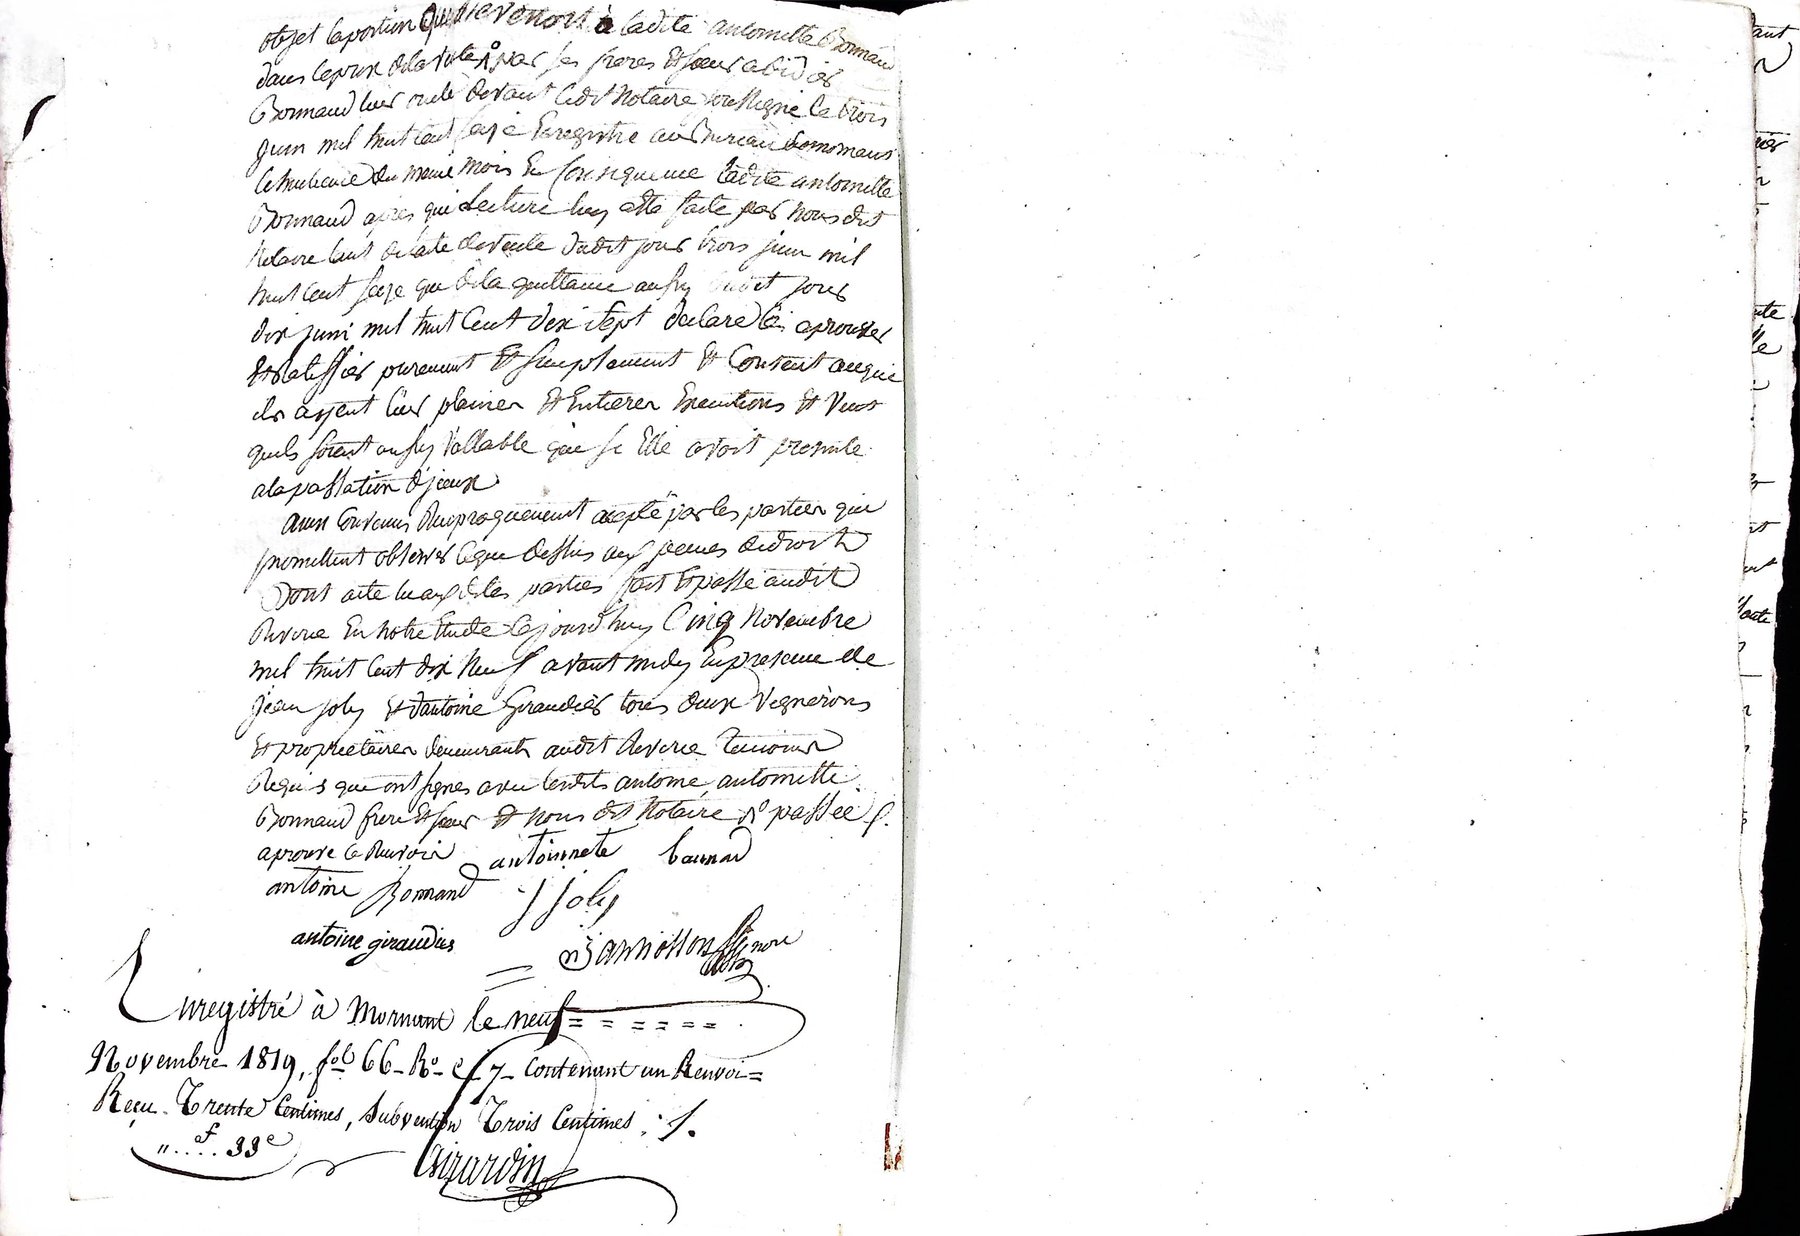 objet la portion qui revenoit à ladite antoinette Bonnand
dans le prix de la vente N° par ses freres et sœur a Didier
Bonnand leur oncle devant ledit Notaire soussigné le trois
juin mil huit cent seize Enregistré au Bureau de mornant
le huitieme du meme mois En Consequence ladite antoinette
Bonnand apres que Lecture luy a été faite par nous dit
Notaire tant de l'acte de vente dudit jour trois juin mil
huit cent seize que de la quittance aussy dudit jour
dix juin mil huit Cent dix sept declare les aprouver
et Ratiffier purement et simplement et Consent a ceque
ils ayent leur plaines et Entieres Executions et Veut
quils soient aussy Vallable que si Elle avoit presente
a la passation d'jceux
ainsi Convenus Reciproquement accepté par les parties qui
promettent observer ceque dessus aux peines de droit
Dont acte lu aux dites parties fait et passé audit
Riverie En notre Etude cejourd'huy Cinq Novembre
mil huit Cent dix Neuf avant midy En presence de
jean joly et d'antoine Giraudier tous deux Vignerons
et proprietaires demeurants audit Riverie Temoins
Requis que ont signés avec lesdits antoine, antoinette
Bonnand frere et sœur et nous dit Notaire N° passée
aprouve le Renvoi antoinnete bonnand
antoine Bonnand j joly
antoine giraudier
Enregistré à Mornant le neuf = = = = = =
Novembre 1819, fol 66 - R° - C 7 - Contenant un Renvoi =
Reçu - Trente Centimes, Subvention Trois Centimes :
" .... f 33 c
Girardin